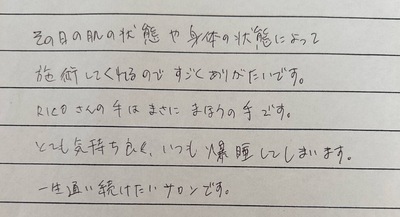 その日の肌の状態や身体の状態によって
施術してくれるので すごくありがたいです。
RICOさんの手は まさに まほうの手です。
とても気持ち良く、いつも爆睡してしまいます。
一生通い続けたいサロンです。